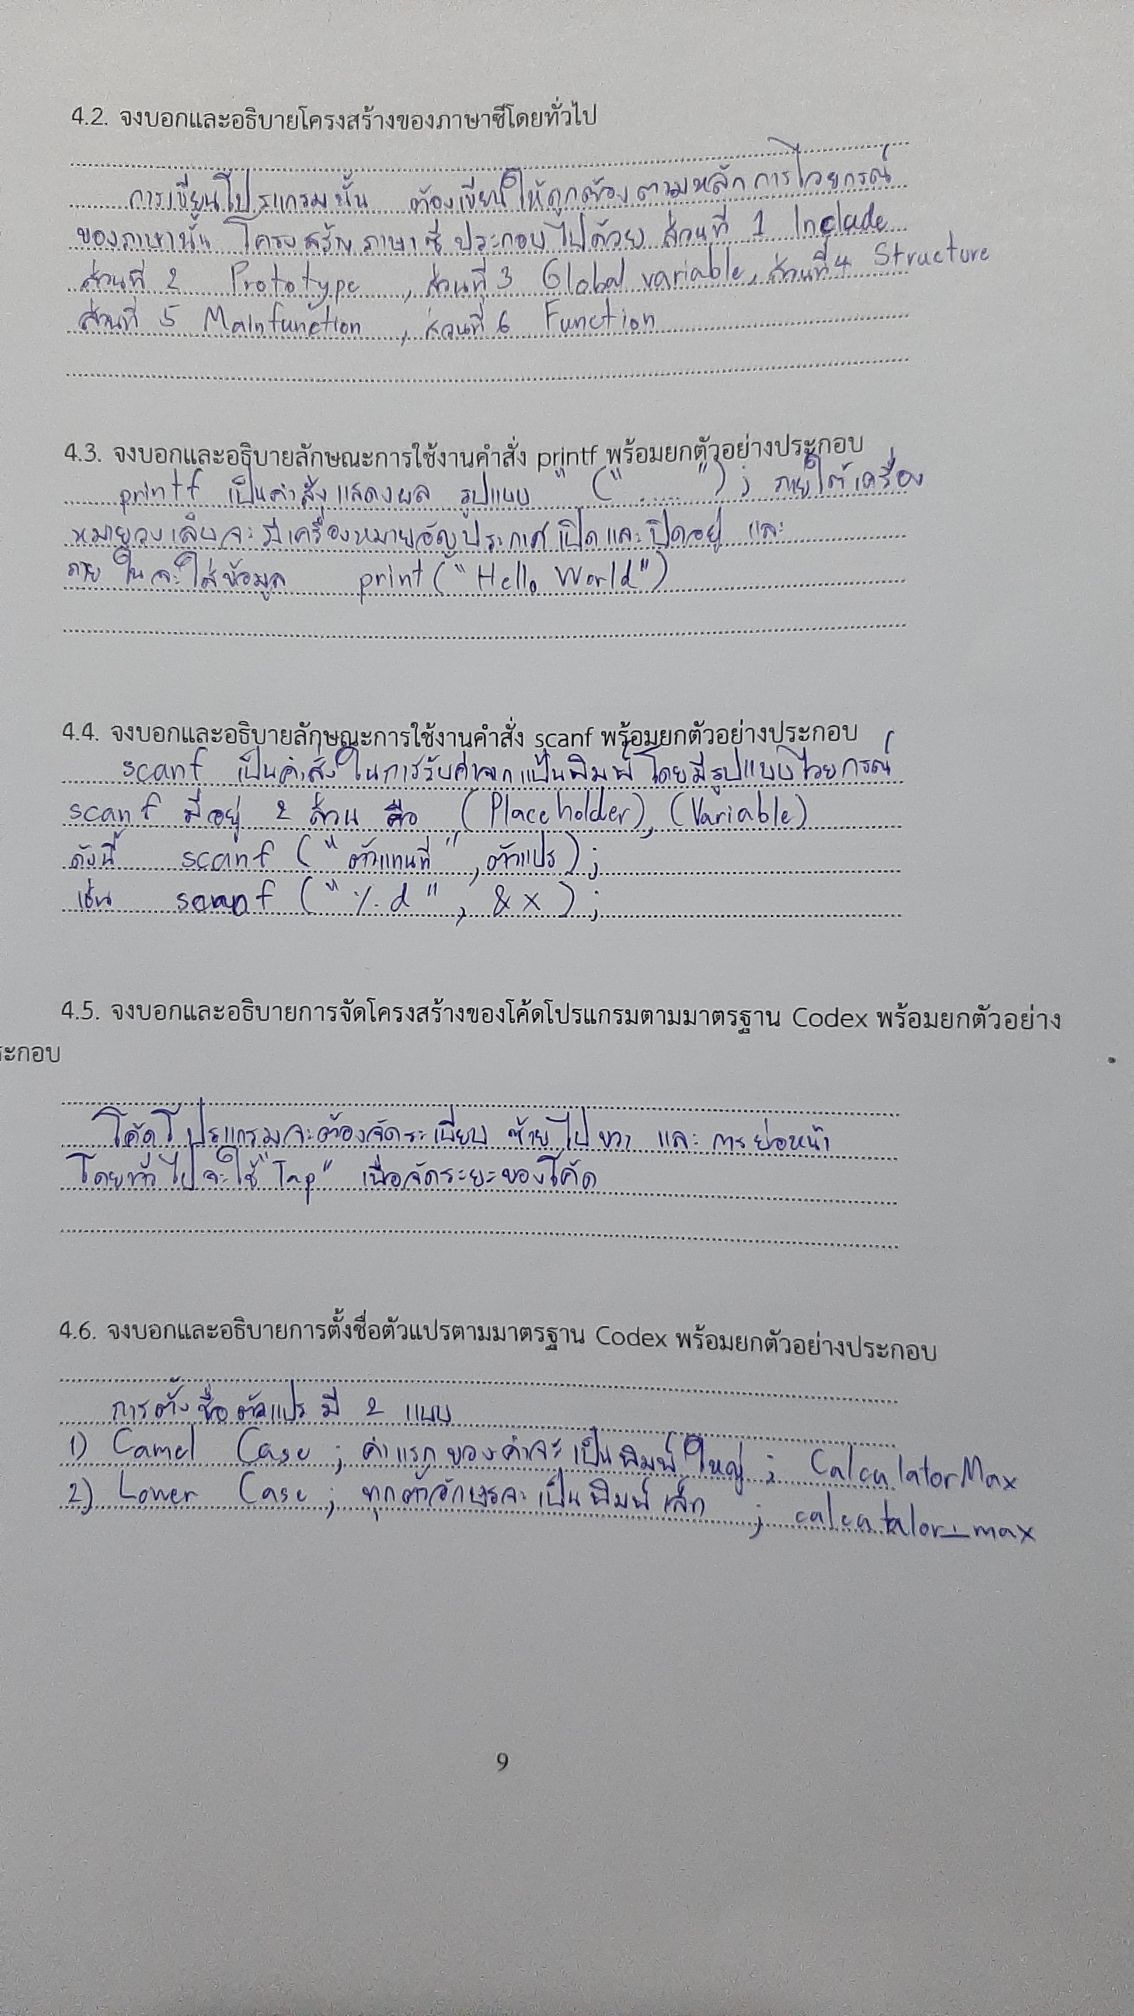 4.2. จงบอกและอธิบายโครงสร้างของภาษาซีโดยทั่วไป
การเขียนโปรแกรมนั้น ต้องเขียนให้ถูกต้องตามหลักการไวยกรณ์
ของภาษานั้น โครงสร้างภาษาซี ประกอบไปด้วย ส่วนที่ 1 Include
ส่วนที่ 2 Prototype , ส่วนที่ 3 Global variable, ส่วนที่ 4 Structure
ส่วนที่ 5 Mainfunction , ส่วนที่ 6 Function
4.3. จงบอกและอธิบายลักษณะการใช้งานคำสั่ง printf พร้อมยกตัวอย่างประกอบ
printf เป็นคำสั่งแสดงผล รูปแบบ "("......")"; ภายใต้เครื่อง
หมายวงเล็บจะมีเครื่องหมายอัญประกาศเปิดและปิดอยู่ และ
ภายในจะใส่ข้อมูล print("Hello World")
4.4. จงบอกและอธิบายลักษณะการใช้งานคำสั่ง scanf พร้อมยกตัวอย่างประกอบ
scanf เป็นคำสั่งในการรับค่าจากแป้นพิมพ์ โดยมีรูปแบบไวยกรณ์
scanf มีอยู่ 2 ส่วน คือ (Placeholder), (Variable)
ดังนี้ scanf ("ตัวแทนที่", ตัวแปร);
เช่น scanf ("%d", &x);
4.5. จงบอกและอธิบายการจัดโครงสร้างของโค้ดโปรแกรมตามมาตรฐาน Codex พร้อมยกตัวอย่าง
ระกอบ
โค้ดโปรแกรมจะต้องจัดระเบียบ ซ้ายไปขวา และ การย่อหน้า
โดยทั่วไปจะใช้ "Tap" เพื่อจัดระยะของโค้ด
4.6. จงบอกและอธิบายการตั้งชื่อตัวแปรตามมาตรฐาน Codex พร้อมยกตัวอย่างประกอบ
การตั้งชื่อตัวแปร มี 2 แบบ
1) Camel Case ; คำแรกของคำจะเป็นพิมพ์ใหญ่ ; CalculatorMax
2) Lower Case ; ทุกตัวอักษรจะเป็นพิมพ์เล็ก ; calcutalor_max
9